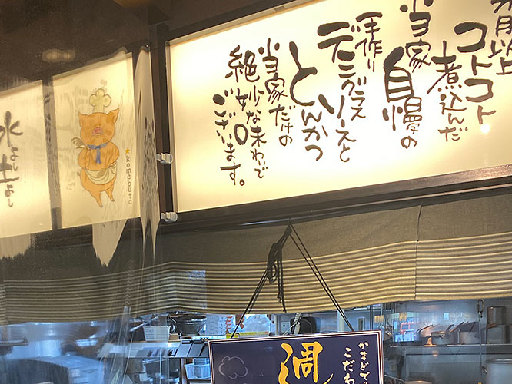 カ月以上
コトコト
煮込んだ
当家
自慢の
手作り
デミグラス
ソースと
とんかつ
当家だけの
絶妙な味わいで
ございます。
水よし
かまどで
こだわ